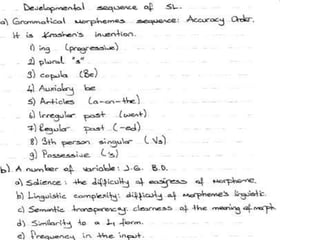 Developmental sequence of SL.
a) Grammatical morphemes sequence: Accuracy Order.
It is Krashen's invention.
1) ing (progressive)
2) plural "s"
3) copula (Be)
4) Auxiliary be
5) Articles (a-an-the)
6) Irregular past (went)
7) Regular past (-ed)
8) 3th person singular (Vs)
9) Possessive ('s)
b) A number of variable: J.G. B.D.
a) Salience: the difficulty of easiness of morpheme.
b) Linguistic complexity: difficulty of morpheme's linguistic.
c) Semantic transparency: clearness of the meaning of morph.
d) Similarity to a L1 form.
e) Frequency in the input.